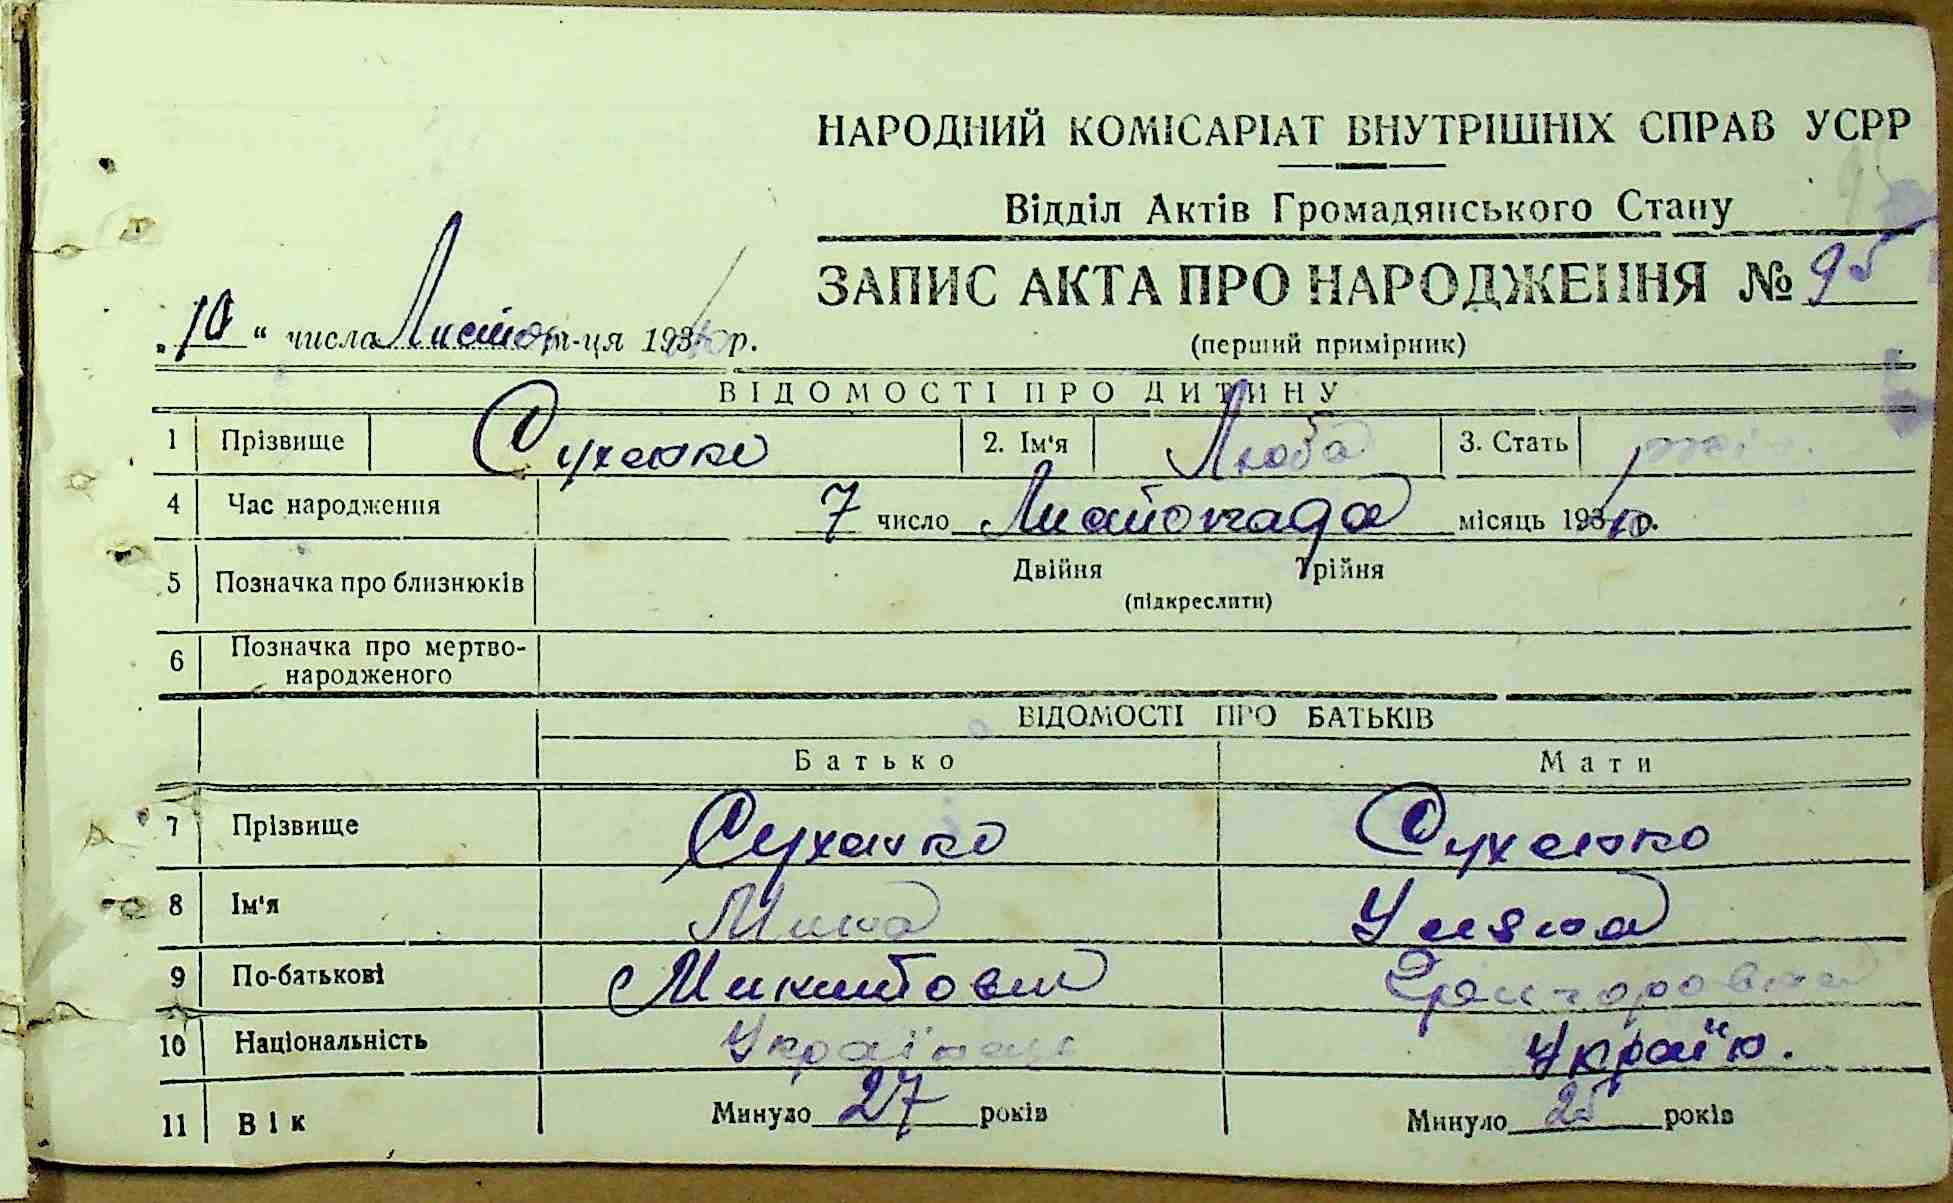 НАРОДНИЙ КОМІСАРІАТ ВНУТРІШНІХ СПРАВ УСРР
Відділ Актів Громадянського Стану
ЗАПИС АКТА ПРО НАРОДЖЕННЯ № 95
„10“ числа Листоп м-ця 1940 р.
(перший примірник)
ВІДОМОСТІ ПРО ДИТИНУ
1 Прізвище Сухенко 2. Ім'я Люба 3. Стать
4 Час народження 7 число Листопада місяць 1940 р.
5 Позначка про близнюків Двійня Трійня
(підкреслити)
6 Позначка про мертво-
народженого
ВІДОМОСТІ ПРО БАТЬКІВ
Батько Мати
7 Прізвище Сухенко Сухенко
8 Ім'я Миша Уляна
9 По-батькові Микитович Григоровна
10 Національність Українець Україн.
11 Вік Минуло 27 років Минуло 25 років